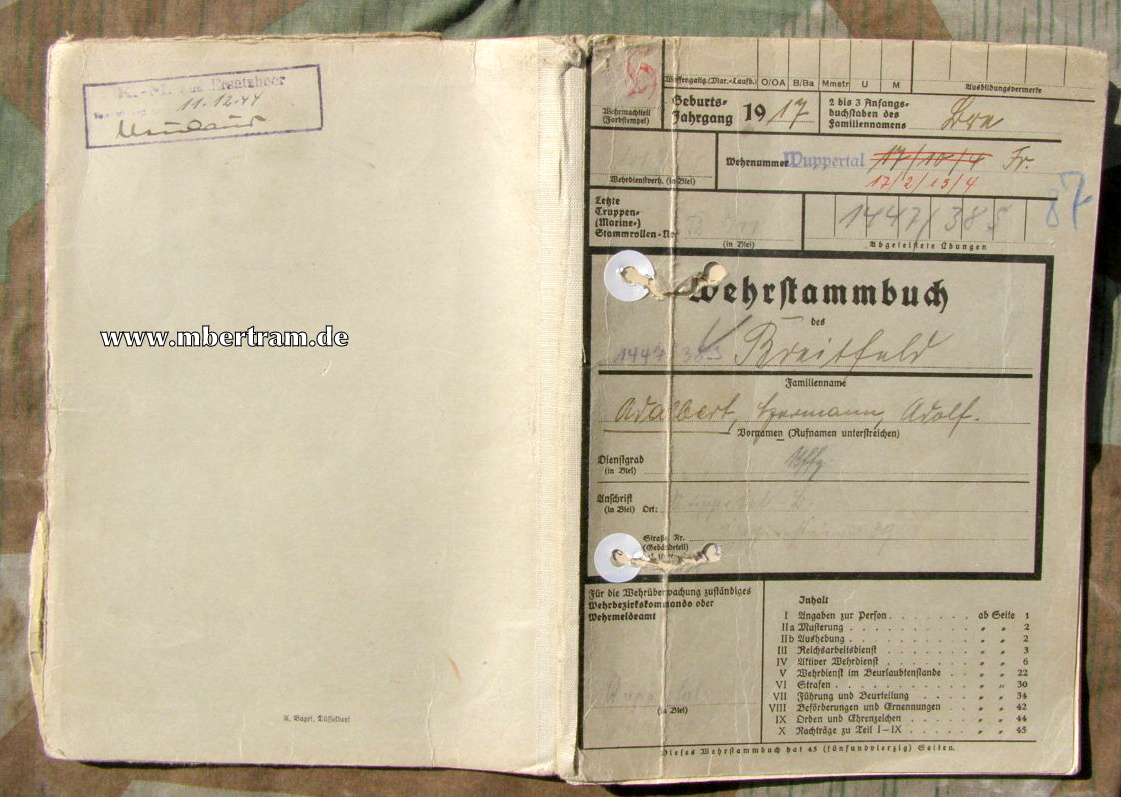 K.-M. aus Ersatzheer
11.12.44
www.mbertram.de
A. Bagel, Düsseldorf
Wehrmachtteil
(Farbstempel)
Waffengattg.(Mar.-Laufb.) O/OA B/Ba Mmstr U M
Ausbildungsvermerke
Geburts-
Jahrgang 1917
2 bis 3 Anfangs-
buchstaben des
Familiennamens Bre
Wehrdienstverh. (in Blei)
Wehrnummer Wuppertal 17/10/4 Fr.
17/2/15/4
87
Letzte
Truppen-
(Marine-)
Stammrollen-Nr.
(in Blei)
1447/38 S
Abgeleistete Übungen
Wehrstammbuch
des
1447/38 S Breitfeld
Familienname
Adalbert, Hermann, Adolf.
Vornamen (Rufnamen unterstreichen)
Dienstgrad
(in Blei) Uffz
Anschrift
(in Blei) Ort: Wuppertal
Straße, Nr.
(Gebäudeteil)
Für die Wehrüberwachung zuständiges
Wehrbezirkskommando oder
Wehrmeldeamt
Wuppertal
(in Blei)
Inhalt
I Angaben zur Person . . . . . . . ab Seite 1
IIa Musterung . . . . . . . „ „ 2
IIb Aushebung . . . . . . . „ „ 2
III Reichsarbeitsdienst . . . . . . . „ „ 3
IV Aktiver Wehrdienst . . . . . . . „ „ 6
V Wehrdienst im Beurlaubtenstande . . „ „ 22
VI Strafen . . . . . . . „ „ 30
VII Führung und Beurteilung . . . . „ „ 34
VIII Beförderungen und Ernennungen . . „ „ 42
IX Orden und Ehrenzeichen . . . . „ „ 44
X Nachträge zu Teil I–IX . . . . „ „ 45
Dieses Wehrstammbuch hat 45 (fünfundvierzig) Seiten.